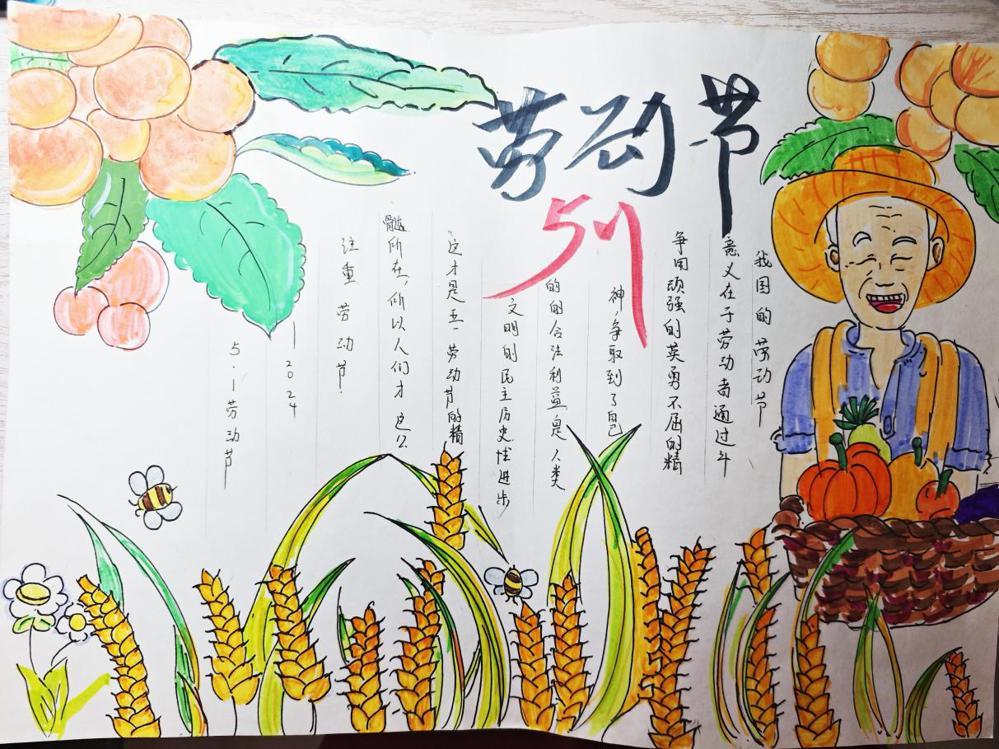 劳动节
5川
我国的劳动节
意义在于劳动者通过斗
争用顽强的英勇不屈的精
神,争取到了自己
的的合法利益是人类
文明的民主历史性进步
这才是五一劳动节的精
髓所在,所以人们才这么
注重劳动节.
——2024
5.1劳动节